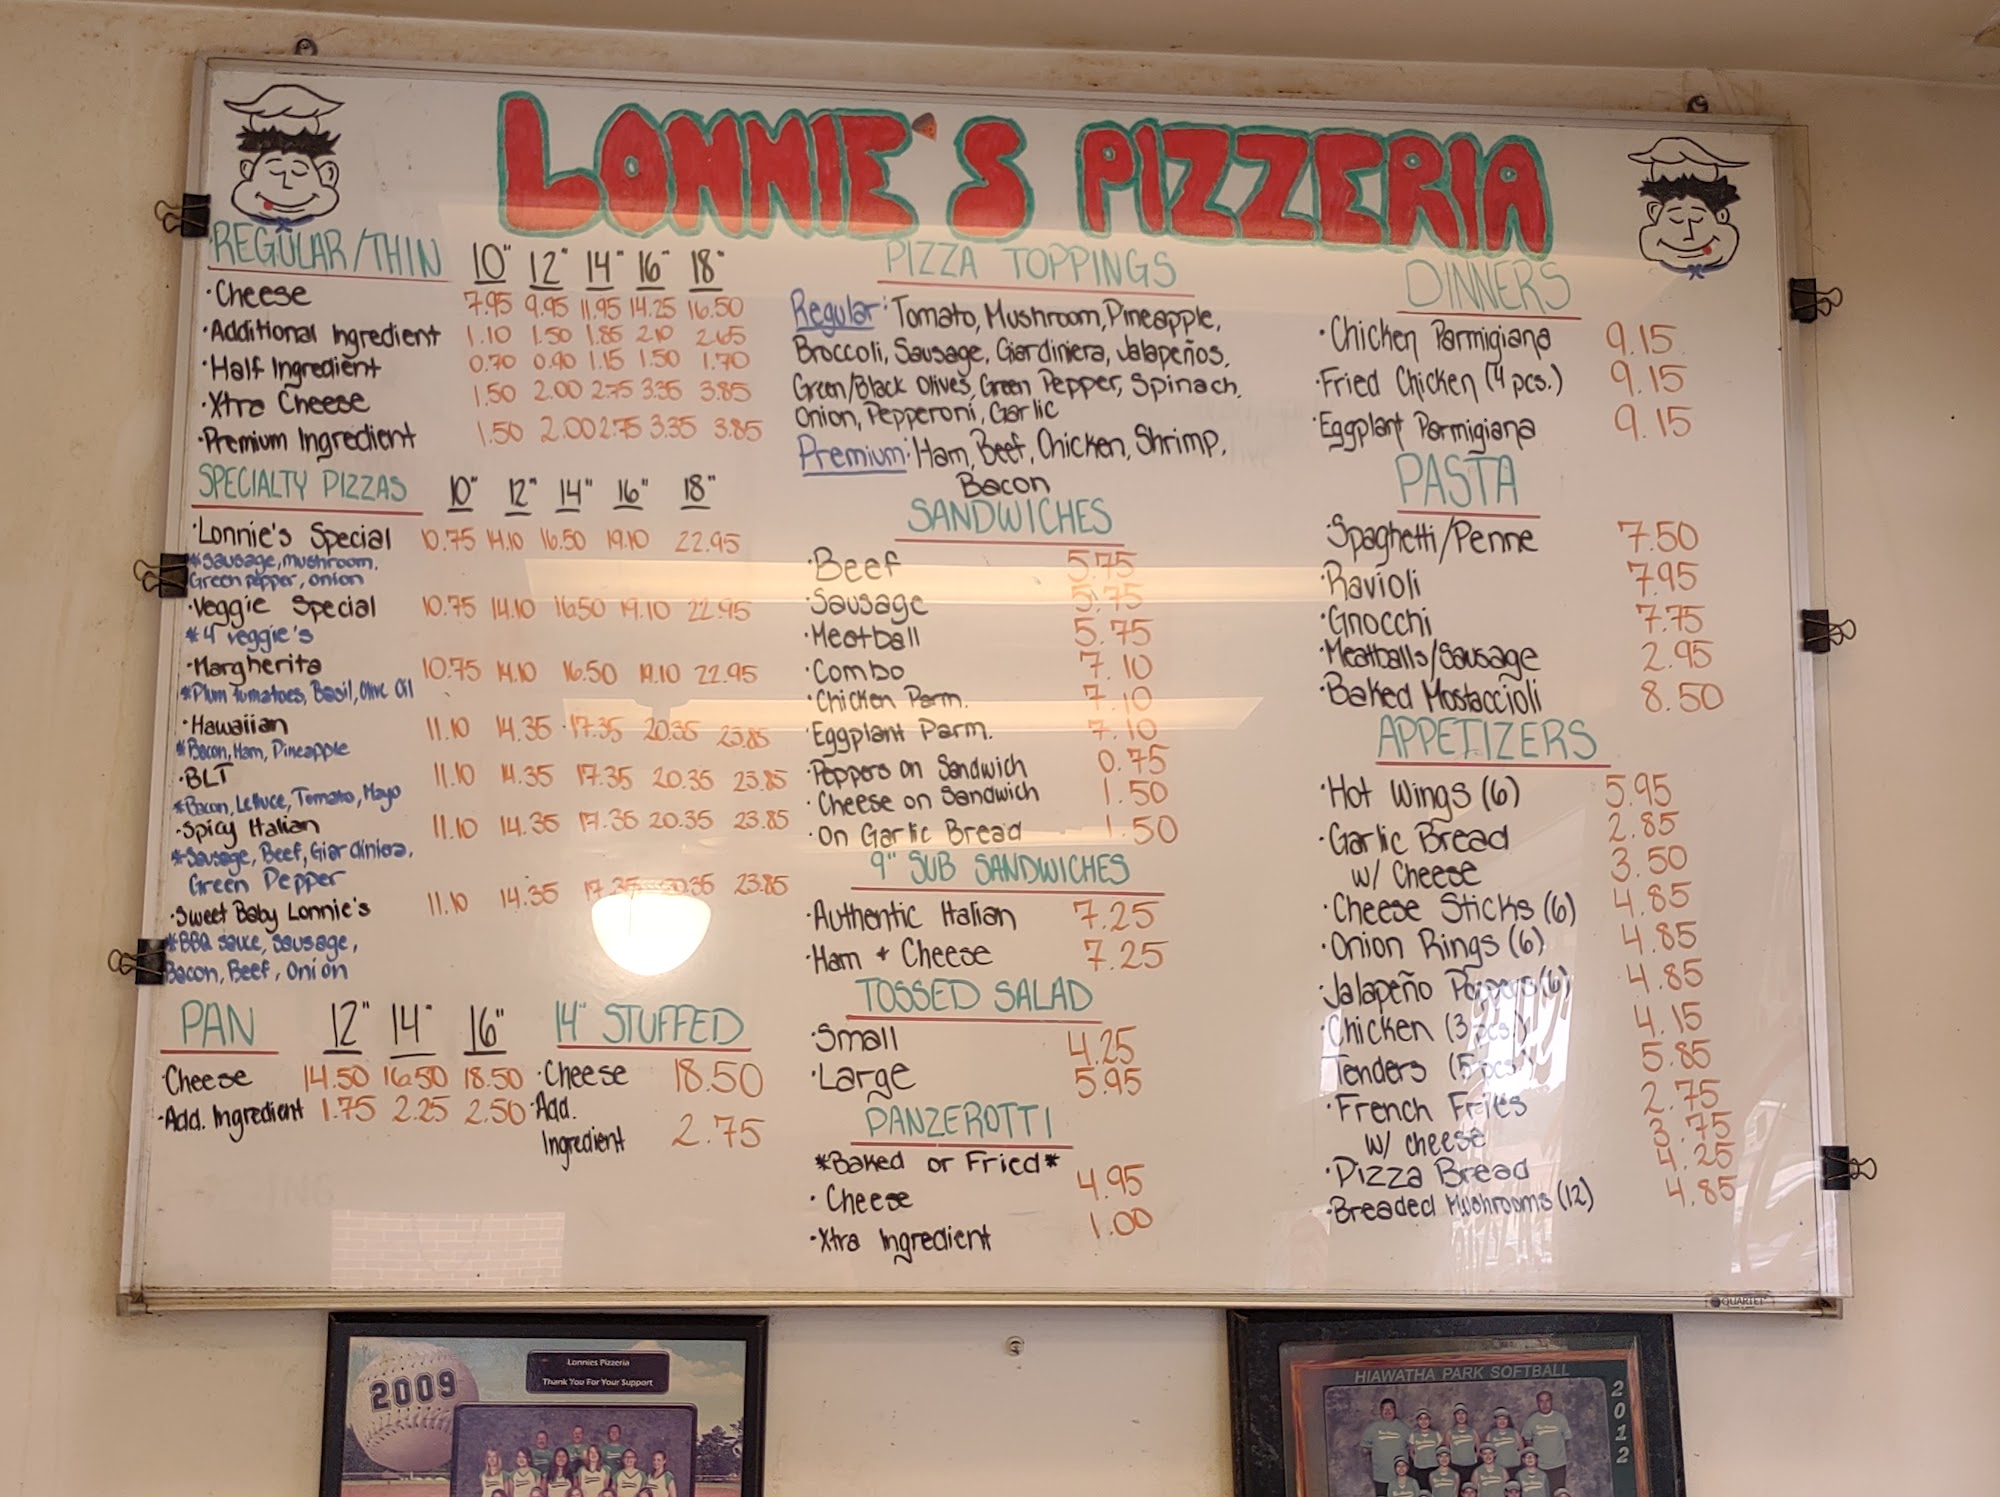 LONNIE'S PIZZERIA
REGULAR/THIN 10" 12" 14" 16" 18"
·Cheese 7.95 9.95 11.95 14.25 16.50
·Additional Ingredient 1.10 1.50 1.85 2.10 2.65
·Half Ingredient 0.70 0.90 1.15 1.50 1.70
·Xtra Cheese 1.50 2.00 2.75 3.35 3.85
·Premium Ingredient 1.50 2.00 2.75 3.35 3.85
SPECIALTY PIZZAS 10" 12" 14" 16" 18"
·Lonnie's Special 10.75 14.10 16.50 19.10 22.95
*Sausage, mushroom,
Green pepper, onion
·Veggie Special 10.75 14.10 16.50 19.10 22.95
*4 veggie's
·Margherita 10.75 14.10 16.50 19.10 22.95
*Plum tumatoes, Basil, Olive Oil
·Hawaiian 11.10 14.35 17.35 20.35 23.85
*Bacon, Ham, Pineapple
·BLT 11.10 14.35 17.35 20.35 23.85
*Bacon, Lettuce, Tomato, Mayo
·Spicy Italian 11.10 14.35 17.35 20.35 23.85
*Sausage, Beef, Giardiniera,
Green Pepper
·Sweet Baby Lonnie's 11.10 14.35 17.35 20.35 23.85
*BBQ sauce, sausage,
Bacon, Beef, onion
PAN 12" 14" 16"
Cheese 14.50 16.50 18.50
·Add. Ingredient 1.75 2.25 2.50
14" STUFFED
·Cheese 18.50
·Add.
Ingredient 2.75
PIZZA TOPPINGS
Regular: Tomato, Mushroom, Pineapple,
Broccoli, Sausage, Giardiniera, Jalapeños,
Green/Black Olives, Green Pepper, Spinach,
Onion, Pepperoni, Garlic
Premium: Ham, Beef, Chicken, Shrimp,
Bacon
SANDWICHES
·Beef 5.75
·Sausage 5.75
·Meatball 5.75
·Combo 7.10
·Chicken Parm. 7.10
·Eggplant Parm. 7.10
·Peppers on Sandwich 0.75
·Cheese on Sandwich 1.50
·On Garlic Bread 1.50
9" SUB SANDWICHES
·Authentic Italian 7.25
·Ham + Cheese 7.25
TOSSED SALAD
·Small 4.25
·Large 5.95
PANZEROTTI
*Baked or Fried*
·Cheese 4.95
·Xtra Ingredient 1.00
DINNERS
·Chicken Parmigiana 9.15
·Fried Chicken (4 pcs.) 9.15
·Eggplant Parmigiana 9.15
PASTA
·Spaghetti/Penne 7.50
·Ravioli 7.95
·Gnocchi 7.75
·Meatballs/Sausage 2.95
·Baked Mostaccioli 8.50
APPETIZERS
·Hot Wings (6) 5.95
·Garlic Bread 2.85
w/ Cheese 3.50
·Cheese Sticks (6) 4.85
·Onion Rings (6) 4.85
·Jalapeño Poppers (6) 4.85
·Chicken (3 pcs.) 4.15
Tenders (5 pcs.) 5.85
·French Fries 2.75
w/ cheese 3.75
·Pizza Bread 4.25
·Breaded Mushrooms (12) 4.85
QUARTET
2009
Lonnies Pizzeria
Thank You For Your Support
HIAWATHA PARK SOFTBALL
2012